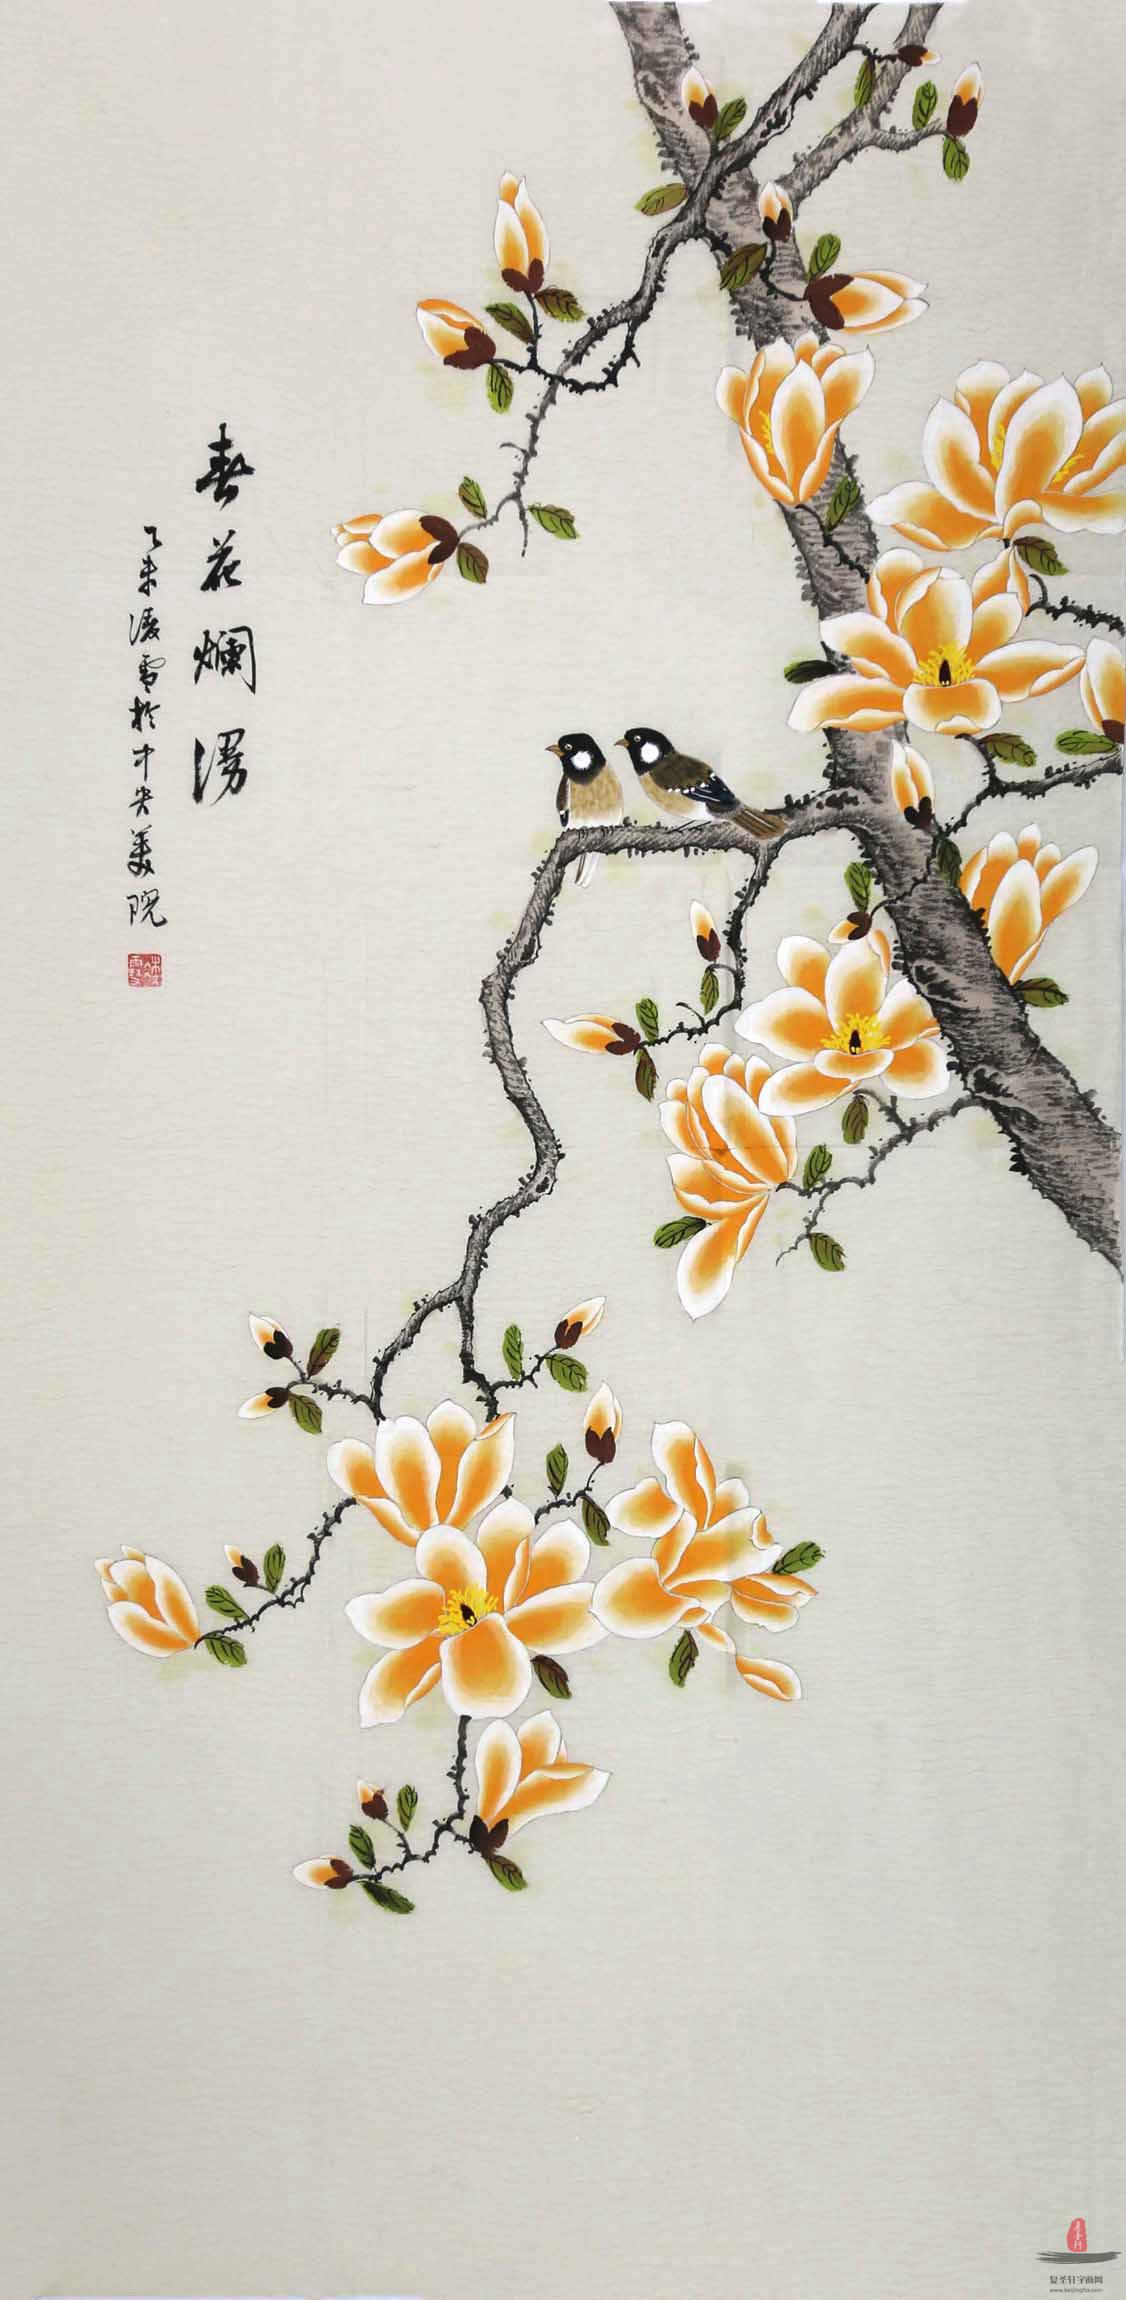 春花爛漫
乙未凌雪於中央美院
复圣轩字画网
www.beijingfsx.com